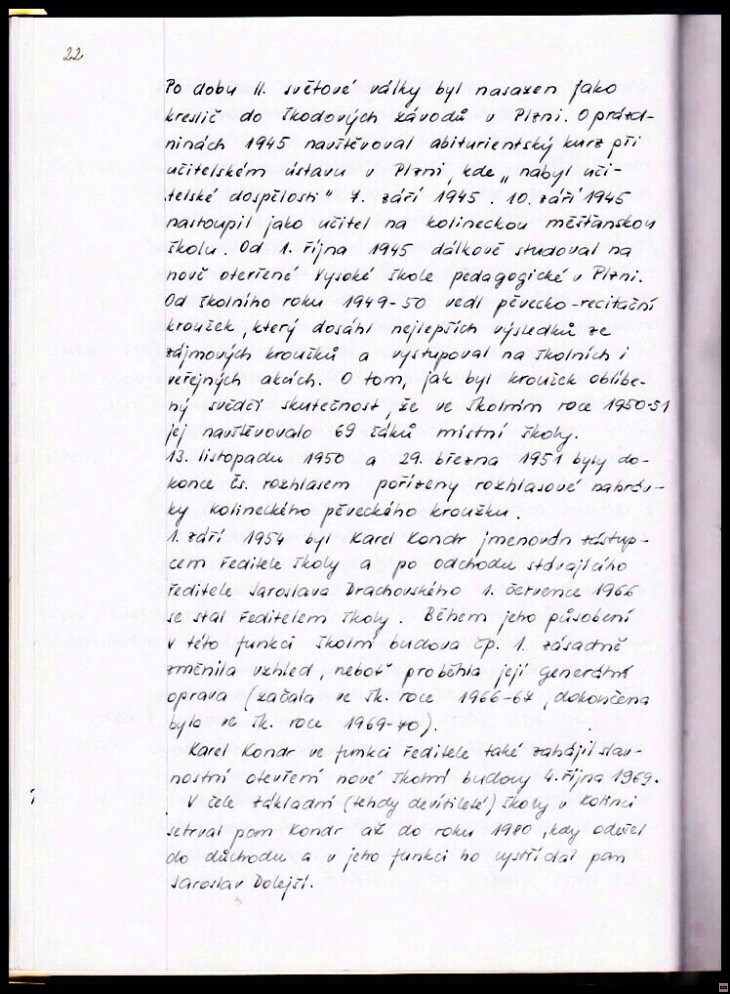 22
Po dobu II. světové války byl nasazen jako
kreslič do Škodových závodů v Plzni. O prázd-
ninách 1945 navštěvoval abiturientský kurz při
učitelském ústavu v Plzni, kde „nabyl uči-
telské dospělosti" 7. září 1945. 10. září 1945
nastoupil jako učitel na kolineckou měšťanskou
školu. Od 1. října 1945 dálkově studoval na
nově otevřené Vysoké škole pedagogické v Plzni.
Od školního roku 1949-50 vedl pěvecko-recitační
kroužek, který dosáhl nejlepších výsledků ze
zájmových kroužků a vystupoval na školních i
veřejných akcích. O tom, jak byl kroužek oblíbe-
ný svědčí skutečnost, že ve školním roce 1950-51
jej navštěvovalo 69 žáků místní školy.
13. listopadu 1950 a 29. března 1951 byly do-
konce čs. rozhlasem pořízeny rozhlasové nahráv-
ky kolineckého pěveckého kroužku.
1. září 1954 byl Karel Kondr jmenován zástup-
cem ředitele školy a po odchodu stávajícího
ředitele Jaroslava Drachovského 1. července 1966
se stal ředitelem školy. Během jeho působení
v této funkci školní budova čp. 1. zásadně
změnila vzhled, neboť proběhla její generální
oprava (začala ve šk. roce 1966-67, dokončena
byla ve šk. roce 1969-70).
Karel Kondr ve funkci ředitele také zahájil slav-
nostní otevření nové školní budovy 4. října 1969.
V čele základní (tehdy devítileté) školy v Kolinci
setrval pan Kondr až do roku 1980, kdy odešel
do důchodu a v jeho funkci ho vystřídal pan
Jaroslav Dolejší.